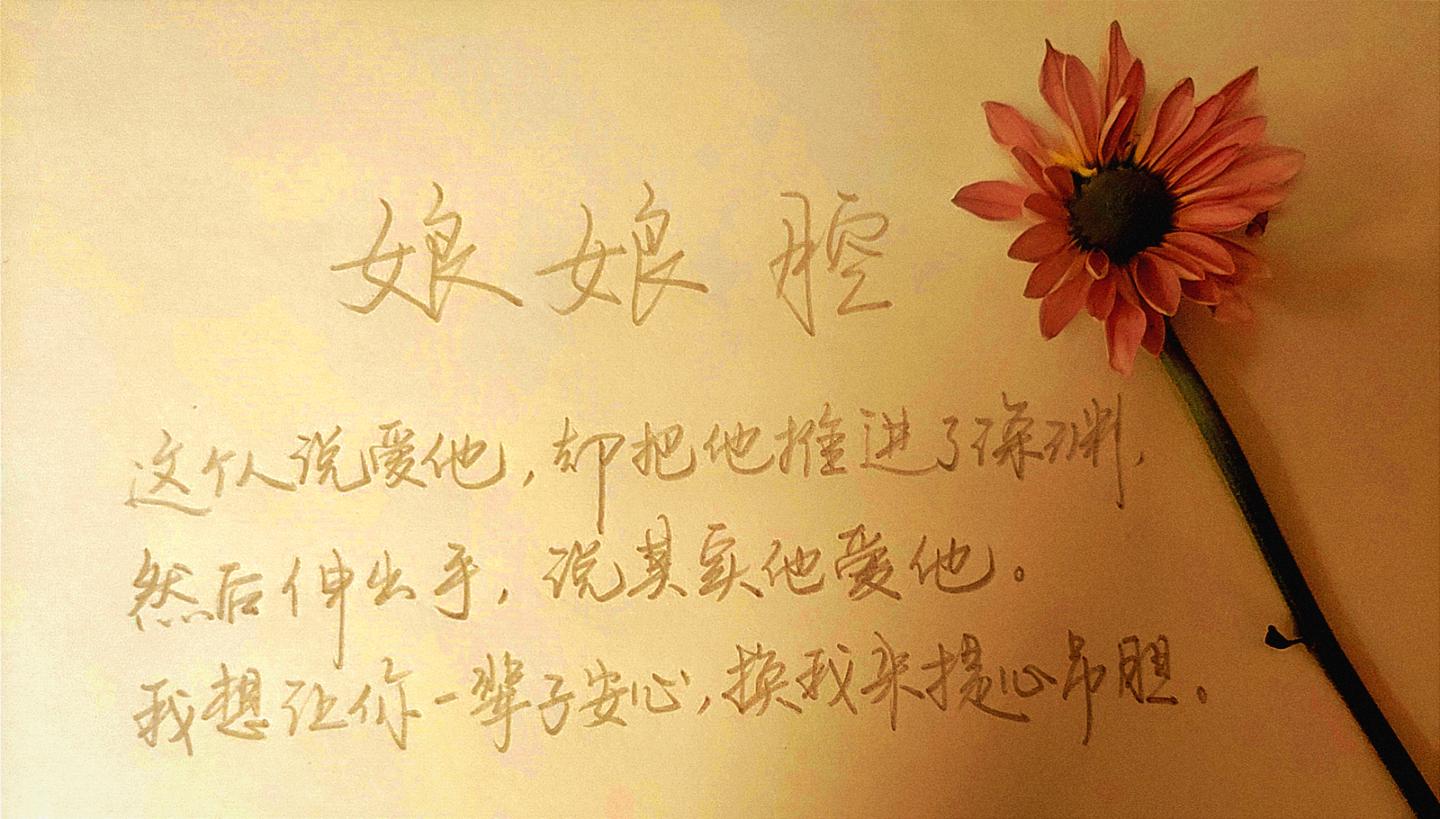 娘娘腔
这个人说爱他，却把他推进了深渊，
然后伸出手，说其实他爱他。
我想让你一辈子安心，换我来提心吊胆。